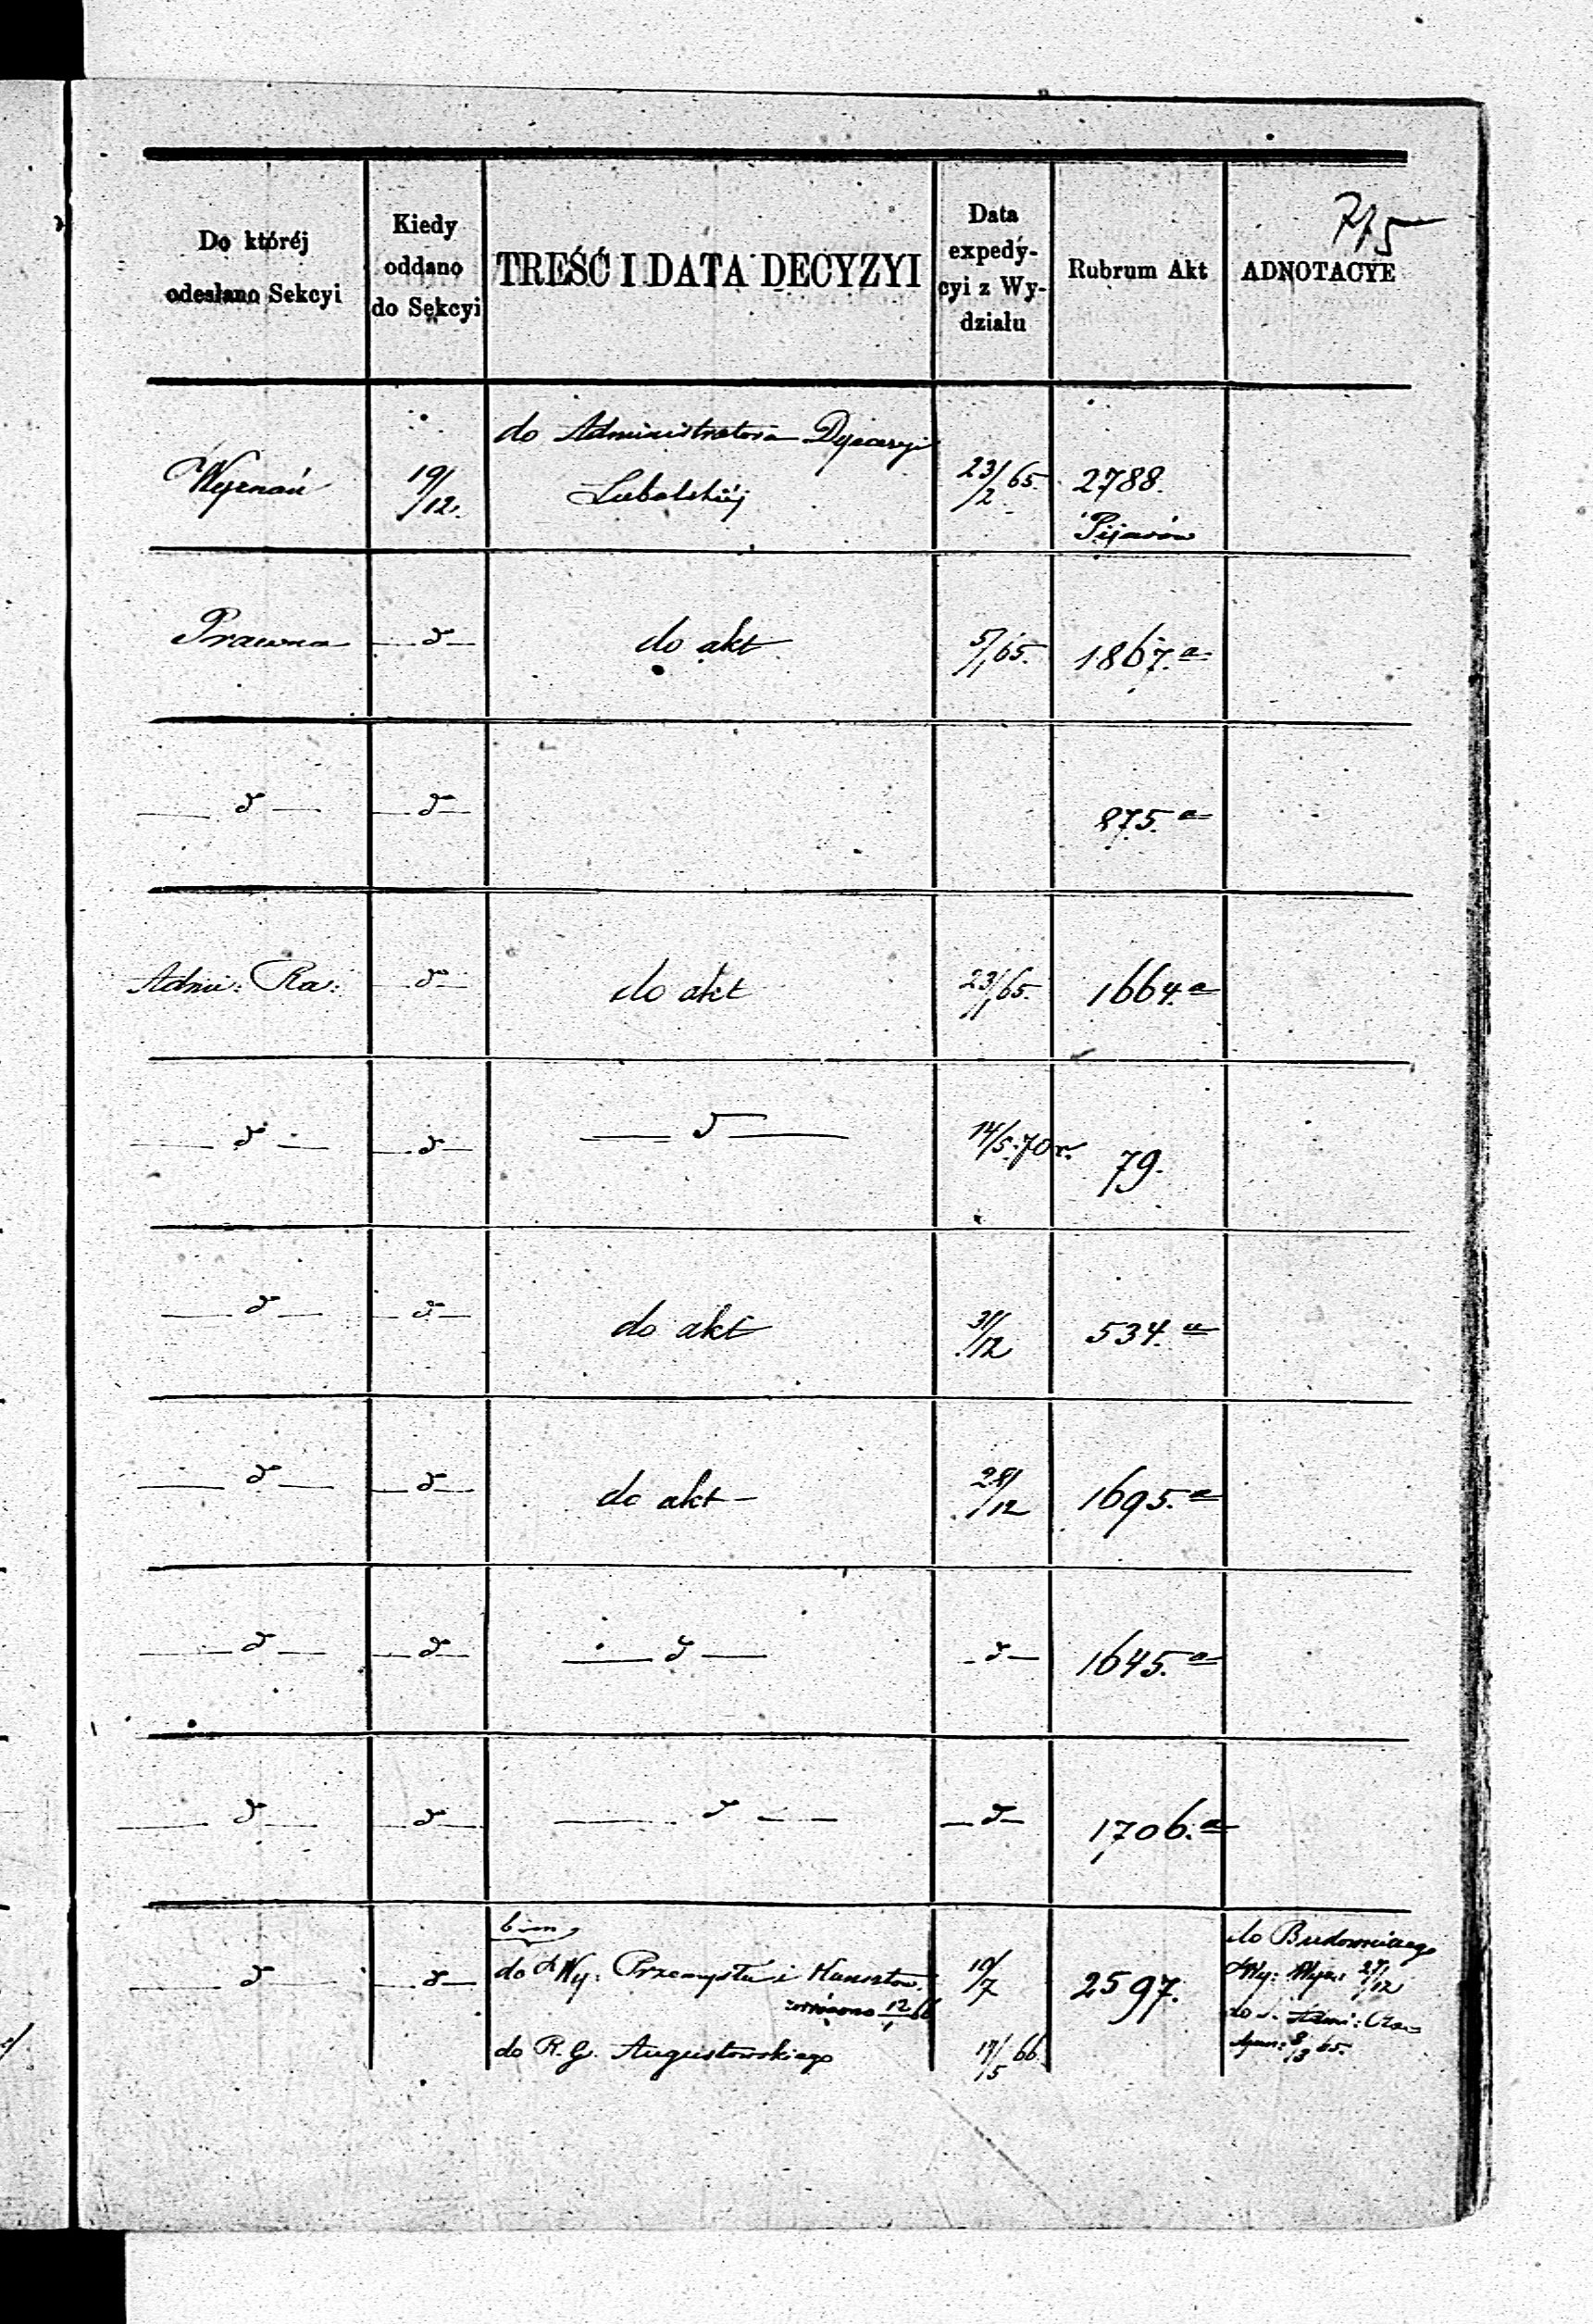 775
Do któréj
odesłano Sekcyi
Kiedy
oddano
do Sekcyi
TREŚĆ I DATA DECYZYI
Data
expedy-
cyi z Wy-
działu
Rubrum Akt
ADNOTACYE
Wyznań
19/12.
do Administratora Dyecezyi
Lubelskiéj
23/2 65.
2788.
Pijarów
Prawna
— d —
do akt
5/1 65.
1867.a
— d —
— d —
875.a
Admi: Ra:
— d —
do akt
23/1 65.
1664.a
— d —
— d —
— d —
14/5. 70 r.
79.
— d —
— d —
do akt
31/12
534.a
— d —
— d —
do akt —
28/12
1695.a
— d —
— d —
— d —
— d —
1645.a
— d —
— d —
— d —
— d —
1706.a
— d —
— d —
do Wy: Przemysłu i Kunsztów
zwrócono 12/1 66
do R. G. Augustowskiego
10/7
17/5 66.
2597.
do Budowniczego
Wy: Wyzn: 27/12
8/3 65.